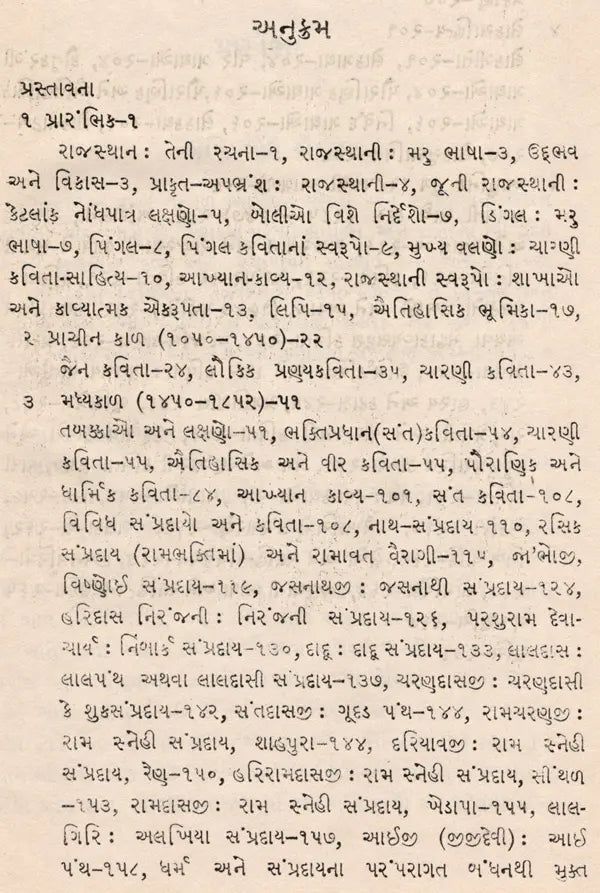 અનુક્રમ
પ્રસ્તાવના
૧ પ્રારંભિક-૧
રાજસ્થાન: તેની રચના-૧, રાજસ્થાની: મરુ ભાષા-૩, ઉદ્દભવ
અને વિકાસ-૩, પ્રાકૃત-અપભ્રંશ: રાજસ્થાની-૪, જૂની રાજસ્થાની:
કેટલાંક નોંધપાત્ર લક્ષણો-૫, બોલીઓ વિશે નિર્દેશો-૭, ડિંગલ: મરુ
ભાષા-૭, પિંગલ-૮, પિંગલ કવિતાનાં સ્વરૂપો-૯, મુખ્ય વલણો: ચારણી
કવિતા-સાહિત્ય-૧૦, આખ્યાન-કાવ્ય-૧૨, રાજસ્થાની સ્વરૂપો: શાખાઓ
અને કાવ્યાત્મક એકરૂપતા-૧૩, લિપિ-૧૫, ઐતિહાસિક ભૂમિકા-૧૭,
૨ પ્રાચીન કાળ (૧૦૫૦-૧૪૫૦)-૨૨
જૈન કવિતા-૨૪, લૌકિક પ્રણયકવિતા-૩૫, ચારણી કવિતા-૪૩,
૩ મધ્યકાળ (૧૪૫૦-૧૮૫૨)-૫૧
તબક્કાઓ અને લક્ષણો-૫૧, ભક્તિપ્રધાન(સંત)કવિતા-૫૪, ચારણી
કવિતા-૫૫, ઐતિહાસિક અને વીર કવિતા-૫૫, પૌરાણિક અને
ધાર્મિક કવિતા-૮૪, આખ્યાન કાવ્ય-૧૦૧, સંત કવિતા-૧૦૮,
વિવિધ સંપ્રદાયો અને કવિતા-૧૦૮, નાથ-સંપ્રદાય-૧૧૦, રસિક
સંપ્રદાય (રામભક્તિમાં) અને રામાવત વૈરાગી-૧૧૫, જાંભોજી,
વિષ્ણોઈ સંપ્રદાય-૧૧૯, જસનાથજી: જસનાથી સંપ્રદાય-૧૨૪,
હરિદાસ નિરંજની: નિરંજની સંપ્રદાય-૧૨૬, પરશુરામ દેવા-
ચાર્ય: નિંબાર્ક સંપ્રદાય-૧૩૦, દાદૂ: દાદૂ સંપ્રદાય-૧૩૩, લાલદાસ:
લાલપંથ અથવા લાલદાસી સંપ્રદાય-૧૩૭, ચરણદાસજી: ચરણદાસી
કે શુકસંપ્રદાય-૧૪૨, સંતદાસજી: ગૂદડ પંથ-૧૪૪, રામચરણજી:
રામ સ્નેહી સંપ્રદાય, શાહપુરા-૧૪૪, દરિયાવજી: રામ સ્નેહી
સંપ્રદાય, રૈણ-૧૫૦, હરિરામદાસજી: રામ સ્નેહી સંપ્રદાય, સીંથળ
-૧૫૩, રામદાસજી: રામ સ્નેહી સંપ્રદાય, ખેડાપા-૧૫૫, લાલ-
ગિરિ: અલખિયા સંપ્રદાય-૧૫૭, આઈજી (જીજીદેવી): આઈ
પંથ-૧૫૮, ધર્મ અને સંપ્રદાયના પરંપરાગત બંધનથી મુક્ત